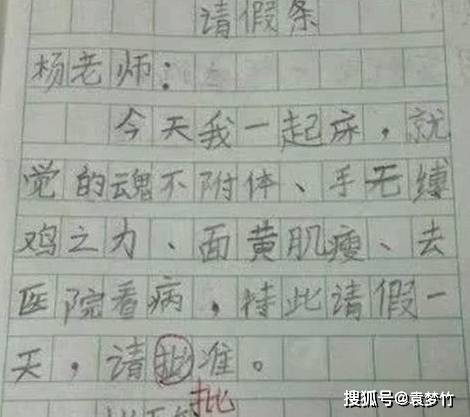 请假条
杨老师：
今天我一起床，就
觉的魂不附体、手无缚
鸡之力、面黄肌瘦、去
医院看病，特此请假一
天，请批准。
批
搜狐号@袁梦竹